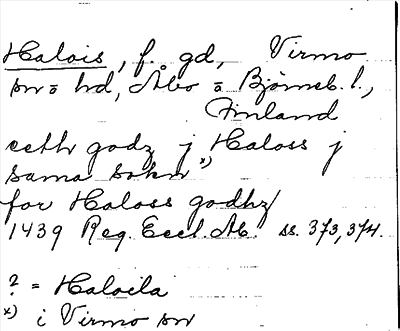 Halois, f. gd, Virmo
sn o hd, Åbo o Björneb. l.,
Finland
eeth godz j Haloss j
sama sokn x)
for Haloss godhz
1439 Reg. Eccl. Ab. ss. 373, 374.
? = Haloila
x) i Virmo sn